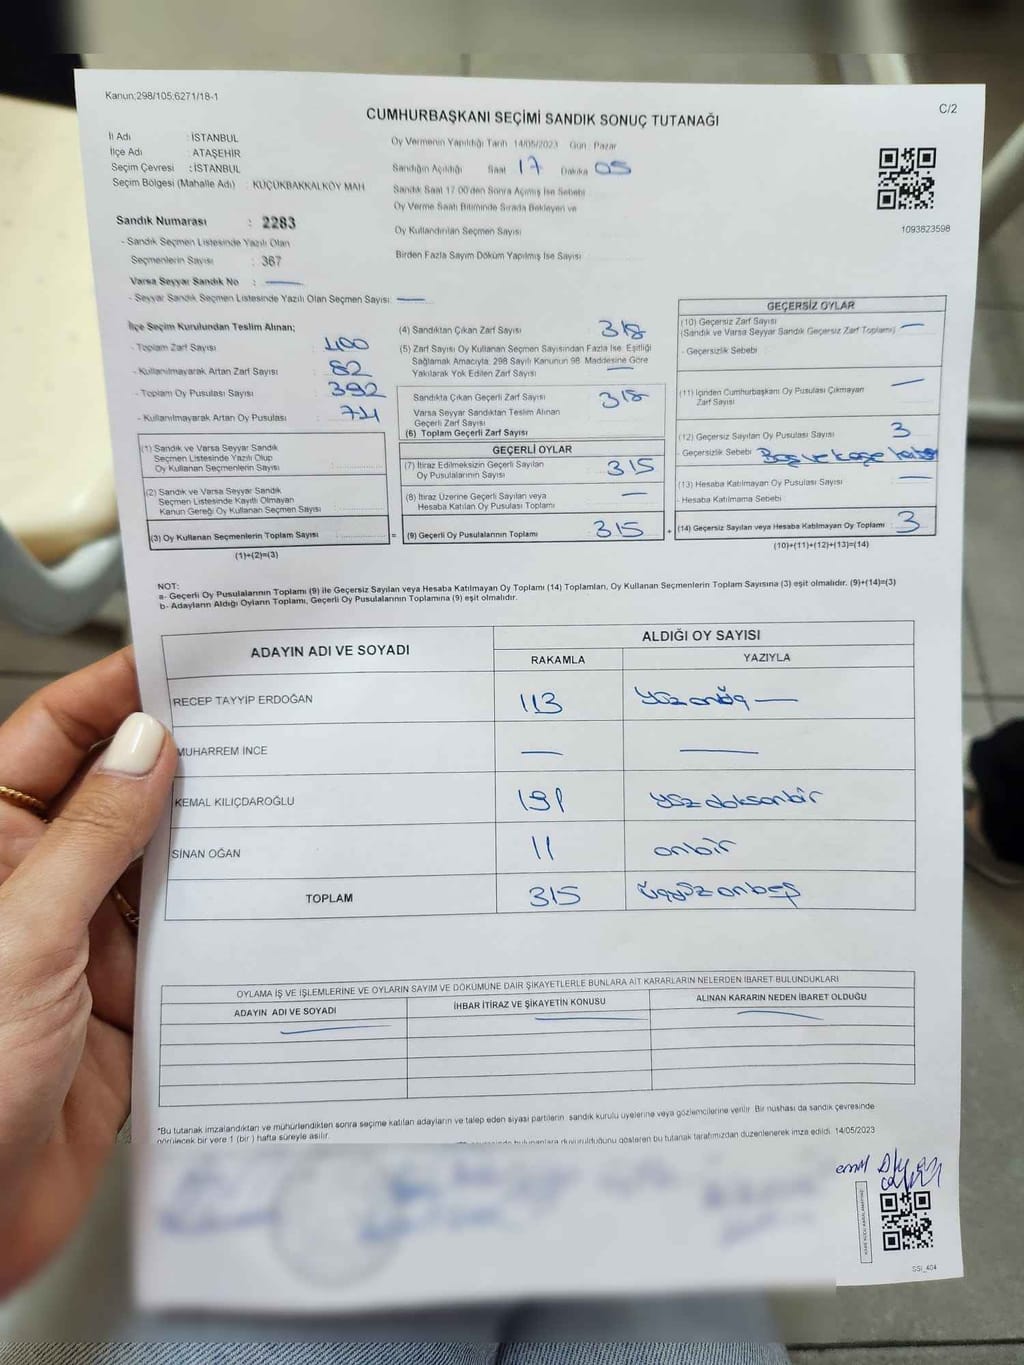 Kanun:298/105;6271/18-1
C/2
CUMHURBAŞKANI SEÇİMİ SANDIK SONUÇ TUTANAĞI
İl Adı : İSTANBUL
İlçe Adı : ATAŞEHİR
Seçim Çevresi : İSTANBUL
Seçim Bölgesi (Mahalle Adı) : KÜÇÜKBAKKALKÖY MAH
Sandık Numarası : 2283
- Sandık Seçmen Listesinde Yazılı Olan
Seçmenlerin Sayısı : 367
Varsa Seyyar Sandık No : —
- Seyyar Sandık Seçmen Listesinde Yazılı Olan Seçmen Sayısı : —
Oy Vermenin Yapıldığı Tarih 14/05/2023 Gün : Pazar
Sandığın Açıldığı Saat 17 Dakika 05
Sandık Saat 17.00'den Sonra Açılmış İse Sebebi
Oy Verme Saati Bitiminde Sırada Bekleyen ve
Oy Kullandırılan Seçmen Sayısı
Birden Fazla Sayım Döküm Yapılmış İse Sayısı
1093823598
İlçe Seçim Kurulundan Teslim Alınan;
- Toplam Zarf Sayısı : 400
- Kullanılmayarak Artan Zarf Sayısı : 82
- Toplam Oy Pusulası Sayısı : 392
- Kullanılmayarak Artan Oy Pusulası : 74
(1) Sandık ve Varsa Seyyar Sandık
Seçmen Listesinde Yazılı Olup
Oy Kullanan Seçmenlerin Sayısı
(2) Sandık ve Varsa Seyyar Sandık
Seçmen Listesinde Kayıtlı Olmayan
Kanun Gereği Oy Kullanan Seçmen Sayısı
(3) Oy Kullanan Seçmenlerin Toplam Sayısı =
(1)+(2)=(3)
(4) Sandıktan Çıkan Zarf Sayısı 318
(5) Zarf Sayısı Oy Kullanan Seçmen Sayısından Fazla İse, Eşitliği
Sağlamak Amacıyla; 298 Sayılı Kanunun 98. Maddesine Göre
Yakılarak Yok Edilen Zarf Sayısı —
Sandıkta Çıkan Geçerli Zarf Sayısı 318
Varsa Seyyar Sandıktan Teslim Alınan
Geçerli Zarf Sayısı
(6) Toplam Geçerli Zarf Sayısı
GEÇERLİ OYLAR
(7) İtiraz Edilmeksizin Geçerli Sayılan
Oy Pusulalarının Sayısı 315
(8) İtiraz Üzerine Geçerli Sayılan veya
Hesaba Katılan Oy Pusulası Toplamı —
(9) Geçerli Oy Pusulalarının Toplamı 315 +
GEÇERSİZ OYLAR
(10) Geçersiz Zarf Sayısı
(Sandık ve Varsa Seyyar Sandık Geçersiz Zarf Toplamı) —
- Geçersizlik Sebebi :
(11) İçinden Cumhurbaşkanı Oy Pusulası Çıkmayan
Zarf Sayısı —
(12) Geçersiz Sayılan Oy Pusulası Sayısı 3
- Geçersizlik Sebebi : Boş ve kaşe
(13) Hesaba Katılmayan Oy Pusulası Sayısı —
- Hesaba Katılmama Sebebi :
(14) Geçersiz Sayılan veya Hesaba Katılmayan Oy Toplamı 3
(10)+(11)+(12)+(13)=(14)
NOT:
a- Geçerli Oy Pusulalarının Toplamı (9) ile Geçersiz Sayılan veya Hesaba Katılmayan Oy Toplamı (14) Toplamları, Oy Kullanan Seçmenlerin Toplam Sayısına (3) eşit olmalıdır. (9)+(14)=(3)
b- Adayların Aldığı Oyların Toplamı, Geçerli Oy Pusulalarının Toplamına (9) eşit olmalıdır.
ADAYIN ADI VE SOYADI ALDIĞI OY SAYISI
RAKAMLA YAZIYLA
RECEP TAYYİP ERDOĞAN 113 yüz onüç —
MUHARREM İNCE — —
KEMAL KILIÇDAROĞLU 191 yüz doksanbir
SİNAN OĞAN 11 onbir
TOPLAM 315 üçyüz onbeş
OYLAMA İŞ VE İŞLEMLERİNE VE OYLARIN SAYIM VE DÖKÜMÜNE DAİR ŞİKAYETLERLE BUNLARA AİT KARARLARIN NELERDEN İBARET BULUNDUKLARI
ADAYIN ADI VE SOYADI İHBAR İTİRAZ VE ŞİKAYETİN KONUSU ALINAN KARARIN NEDEN İBARET OLDUĞU
— — —
*Bu tutanak imzalandıktan ve mühürlendikten sonra seçime katılan adayların ve talep eden siyasi partilerin, sandık kurulu üyelerine veya gözlemcilerine verilir. Bir nushası da sandık çevresinde
görülecek bir yere 1 (bir) hafta süreyle asılır.
duyurulduğunu gösteren bu tutanak tarafımızdan düzenlenerek imza edildi. 14/05/2023
SSİ_404